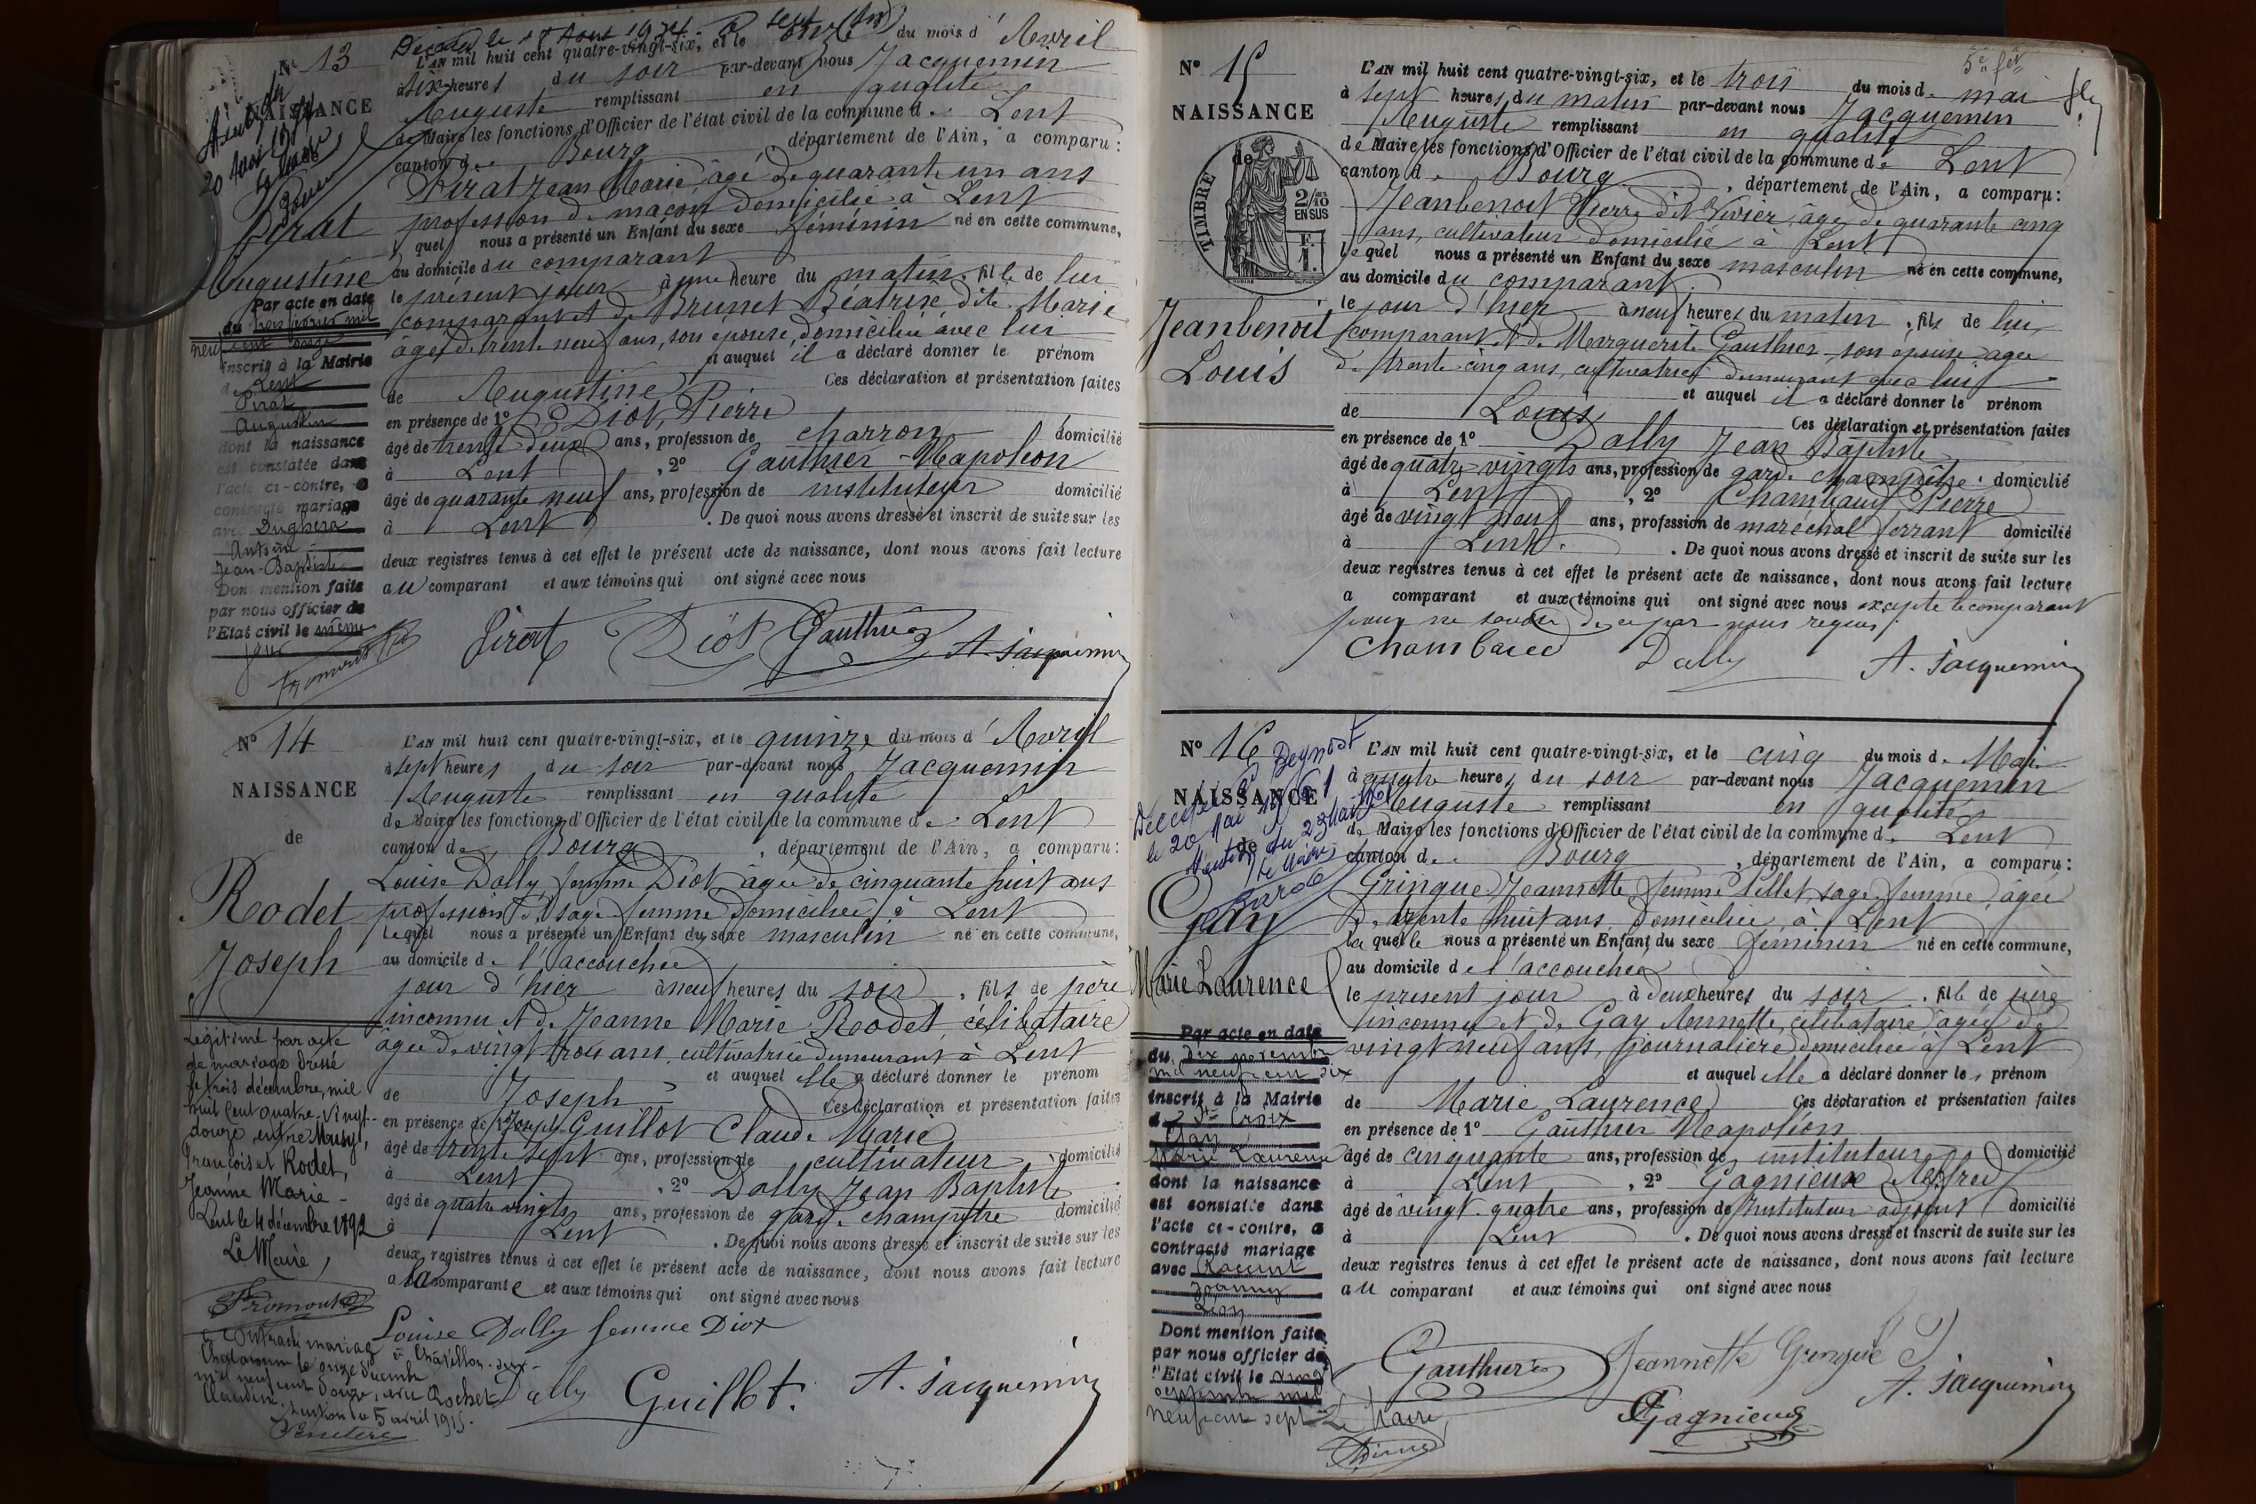 N° 13
NAISSANCE
Pirat
Augustine
Par acte en date
du
neuf cent onze
inscrit à la Mairie
de Lent
Pirat
Augustine
dont la naissance
est constatée dans
l'acte ci-contre, a
contracté mariage
avec
Antoine
Jean-Baptiste
Dont mention faite
par nous officier de
l'Etat civil le même
jour
L'AN mil huit cent quatre-vingt-six, et le onze du mois d'Avril
à six heures du soir par-devant nous Jacquemin
Auguste remplissant en qualité
de Maire les fonctions d'Officier de l'état civil de la commune de Lent
canton de Bourg département de l'Ain, a comparu:
Pirat Jean Marie, âgé de quarante un ans
profession de maçon domicilié à Lent
quel nous a présenté un Enfant du sexe féminin né en cette commune,
au domicile du comparant
le présent jour à une heure du matin, fille de lui
comparant et de Brunet Béatrixe dite Marie
âgée de trente neuf ans, son épouse, domiciliée avec lui
et auquel il a déclaré donner le prénom
de Augustine Ces déclaration et présentation faites
en présence de 1° Diot, Pierre
âgé de trente deux ans, profession de charron domicilié
à Lent, 2° Gauthier Napoléon
âgé de quarante neuf ans, profession de instituteur domicilié
à Lent. De quoi nous avons dressé et inscrit de suite sur les
deux registres tenus à cet effet le présent acte de naissance, dont nous avons fait lecture
au comparant et aux témoins qui ont signé avec nous
Pirat Diot Gauthier A. Jacquemin
N° 14
NAISSANCE
de
Rodet
Joseph
Légitimé par acte
de mariage dressé
le trois décembre, mil
huit cent quatre-vingt-
douze, entre
François et Rodet,
Jeanne Marie -
Lent le 4 décembre 1892
Le Maire,
Fromont
a contracté mariage
à Châtillon-sur-
Chalaronne le onze décembre
mil neuf cent douze, avec Rochet
Claudine. Mention le 5 avril 1915.
L'AN mil huit cent quatre-vingt-six, et le quinze du mois d'Avril
à sept heures du soir par-devant nous Jacquemin
Auguste remplissant en qualité
de Maire les fonctions d'Officier de l'état civil de la commune de Lent
canton de Bourg, département de l'Ain, a comparu:
Louise Dally femme Diot âgée de cinquante huit ans
profession de sage femme domiciliée à Lent
lequel nous a présenté un Enfant du sexe masculin né en cette commune,
au domicile de l'accouchée
jour d'hier à neuf heures du soir, fils de père
inconnu et de Jeanne Marie Rodet, célibataire
âgée de vingt trois ans, cultivatrice demeurant à Lent
et auquel elle a déclaré donner le prénom
de Joseph Ces déclaration et présentation faites
en présence de 1° Guillot Claude Marie
âgé de trente sept ans, profession de cultivateur domicilié
à Lent, 2° Dally Jean Baptiste
âgé de quatre vingts ans, profession de garde champêtre domicilié
à Lent. De quoi nous avons dressé et inscrit de suite sur les
deux registres tenus à cet effet le présent acte de naissance, dont nous avons fait lecture
a la comparante et aux témoins qui ont signé avec nous
Louise Dally femme Diot
Dally Guillot. A. Jacquemin
N° 15
NAISSANCE
de
TIMBRE
2/10
EN SUS
Jeanbenoit
Louis
L'AN mil huit cent quatre-vingt-six, et le trois du mois de mai
à sept heures du matin par-devant nous Jacquemin
Auguste remplissant en qualité
de Maire les fonctions d'Officier de l'état civil de la commune de Lent
canton de Bourg, département de l'Ain, a comparu:
Jeanbenoit Pierre dit Vivier, âgé de quarante cinq
ans, cultivateur domicilié à Lent
lequel nous a présenté un Enfant du sexe masculin né en cette commune,
au domicile du comparant
le jour d'hier à neuf heures du matin, fils de lui
comparant et de Marguerite Gauthier son épouse âgée
de trente-cinq ans, cultivatrice demeurant avec lui
et auquel il a déclaré donner le prénom
de Louis Ces déclaration et présentation faites
en présence de 1° Dally Jean Baptiste
âgé de quatre vingts ans, profession de garde champêtre domicilié
à Lent, 2° Chambaud Pierre
âgé de vingt neuf ans, profession de maréchal ferrant domicilié
à Lent. De quoi nous avons dressé et inscrit de suite sur les
deux registres tenus à cet effet le présent acte de naissance, dont nous avons fait lecture
a comparant et aux témoins qui ont signé avec nous excepté le comparant
pour ne savoir de ce par nous requis.
Chambaud Dally A. Jacquemin
N° 16
NAISSANCE
de
Décédée à Beynost
le 20 Mai 1961
Mention du 23 Mai 1961
Le Maire
Gay
Marie Laurence
Par acte en date
du dix novembre
mil neuf cent dix
inscrit à la Mairie
de Ste Croix
Gay
Marie Laurence
dont la naissance
est constatée dans
l'acte ci-contre, a
contracté mariage
avec
Joanny
Léon
Dont mention faite
par nous officier de
l'Etat civil le vingt
mil
neuf cent
Le Maire
L'AN mil huit cent quatre-vingt-six, et le cinq du mois de Mai
à quatre heures du soir par-devant nous Jacquemin
Auguste remplissant en qualité
de Maire les fonctions d'Officier de l'état civil de la commune de Lent
canton de Bourg, département de l'Ain, a comparu:
Gringue Jeannette femme Pillet, sage femme, âgée
de trente huit ans, domiciliée à Lent
laquelle nous a présenté un Enfant du sexe féminin né en cette commune,
au domicile de l'accouchée
le présent jour à deux heures du soir, fille de père
inconnu et de Gay Annette, célibataire âgée de
vingt neuf ans, journalière domiciliée à Lent
et auquel elle a déclaré donner les prénom
de Marie Laurence Ces déclaration et présentation faites
en présence de 1° Gauthier Napoléon
âgé de cinquante ans, profession de instituteur domicilié
à Lent, 2° Gagnieux Alfred
âgé de vingt-quatre ans, profession de Instituteur adjoint domicilié
à Lent. De quoi nous avons dressé et inscrit de suite sur les
deux registres tenus à cet effet le présent acte de naissance, dont nous avons fait lecture
au comparant et aux témoins qui ont signé avec nous
Gauthier Jeannette Gringue
Gagnieux A. Jacquemin